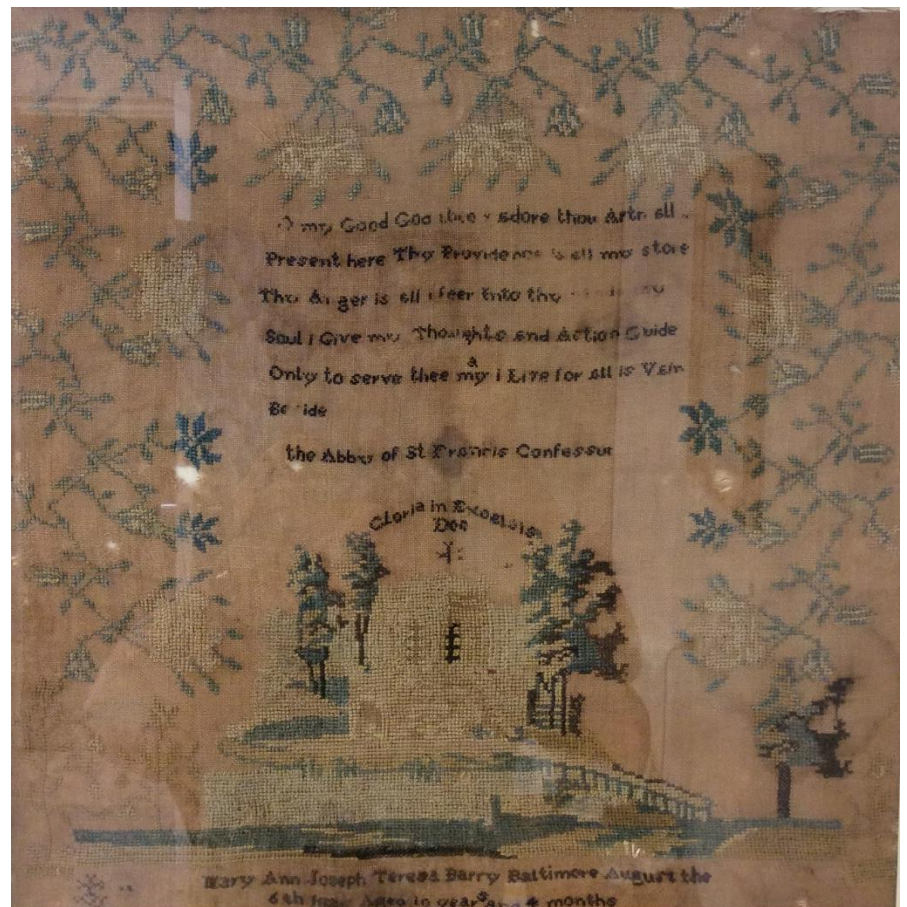 my Good God thee adore thou Artr all
Present here Thy Providence is all my store
Thy Anger is all i feer Into thy
Soul i Give my Thoughts and Action Guide
a
Only to serve thee my i Live for all is Vain
Be ide
the Abby of St Francis Confessor
Gloria in Excelsis
Deo
Mary Ann Joseph Teresa Barry Baltimore August the
6th Aged 10 years and 4 months